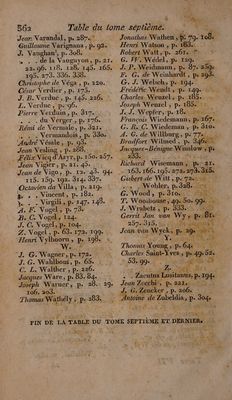 362 Table du tome septième.
Jean Varandal, p. 287.
Guillaume Varignana, p. 92.
J. Vaughan, p. 308.
de la Vauguyon, p. 21.
22. 96. 118. 128. 145. 165.
195. 273. 336. 338.
Christophe de Véga, p. 220.
César Verdier, p. 175.
J. B. Verduc, p. 145. 226.
L. Verduc, p. 96.
Pierre Verduun, p. 317.
du Verger, p. 176.
Rémi de Vermale, p. 321.
Vermandois, p. 330.
André Vésale, p. 93.
Jean Vesling, p. 288.
Félix Vicq d'Azyr, p. 150. 257.
Jean Vigier, p. 21. 45.
Jean de Vigo, p. 12. 43. 94.
115. 159. 192. 314. 325.
Octavien da Villa, p. 219.
Vincent, p. 182.
Virgili, p. 147. 148.
A. F. Vogel, p. 73.
B. C. Vogel, 124.
J. C. Vogel, p. 104.
Z. Vogel, p. 63. 172. 199.
Henri Vylhoorn, p. 198.
W.
J. G. Wagner, p. 172.
J. G. Wahlbous, p. 65.
C. L. Walther, p. 226.
Jacques Ware, p. 83. 84.
Joseph Warner, p. 28. 29.
106. 203.
Thomas Wathely, p. 283.
Jonathas Wathen, p. 79. 108.
Henri Watson, p. 183.
Robert Watt, p. 261.
G. W. Wédel, p. 129.
J. P. Weidmann, p. 87. 259.
F. G. de Weinhardt, p. 298.
G. J. Welsch, p. 194.
Frédéric Wendt, p. 149.
Charles Wenzel, p. 185.
Joseph Wenzel, p. 185.
J. J. Wepfer, p. 18.
François Wiedemann, p. 267.
G. R. C. Wiedemann, p. 310.
A. G. de Willburg, p. 77.
Bradford Wilmed, p. 346.
Jacques-Bénigne Winslow, p.
283.
Richard Wisemann, p. 21.
163. 166. 195. 272. 273. 325.
Gisbert de Witt, p. 72.
Wohler, p. 328.
G. Wood, p. 310.
T. Woolhouse, 49. 50. 99.
J. Wrabetz, p. 333.
Gerrit Jan van Wy, p. 81.
257. 315.
Jean van Wyck, p. 29.
Y.
Thomas Young, p. 64.
Charles Saint-Yves, p. 49. 52.
53. 99.
Z.
Zacutus Lusitanus, p. 194.
Jean Zecchi, p. 221.
J. G. Zencker, p. 206.
Antoine de Zubeldia, p. 304.
FIN DE LA TABLE DU TOME SEPTIÈME ET DERNIER.